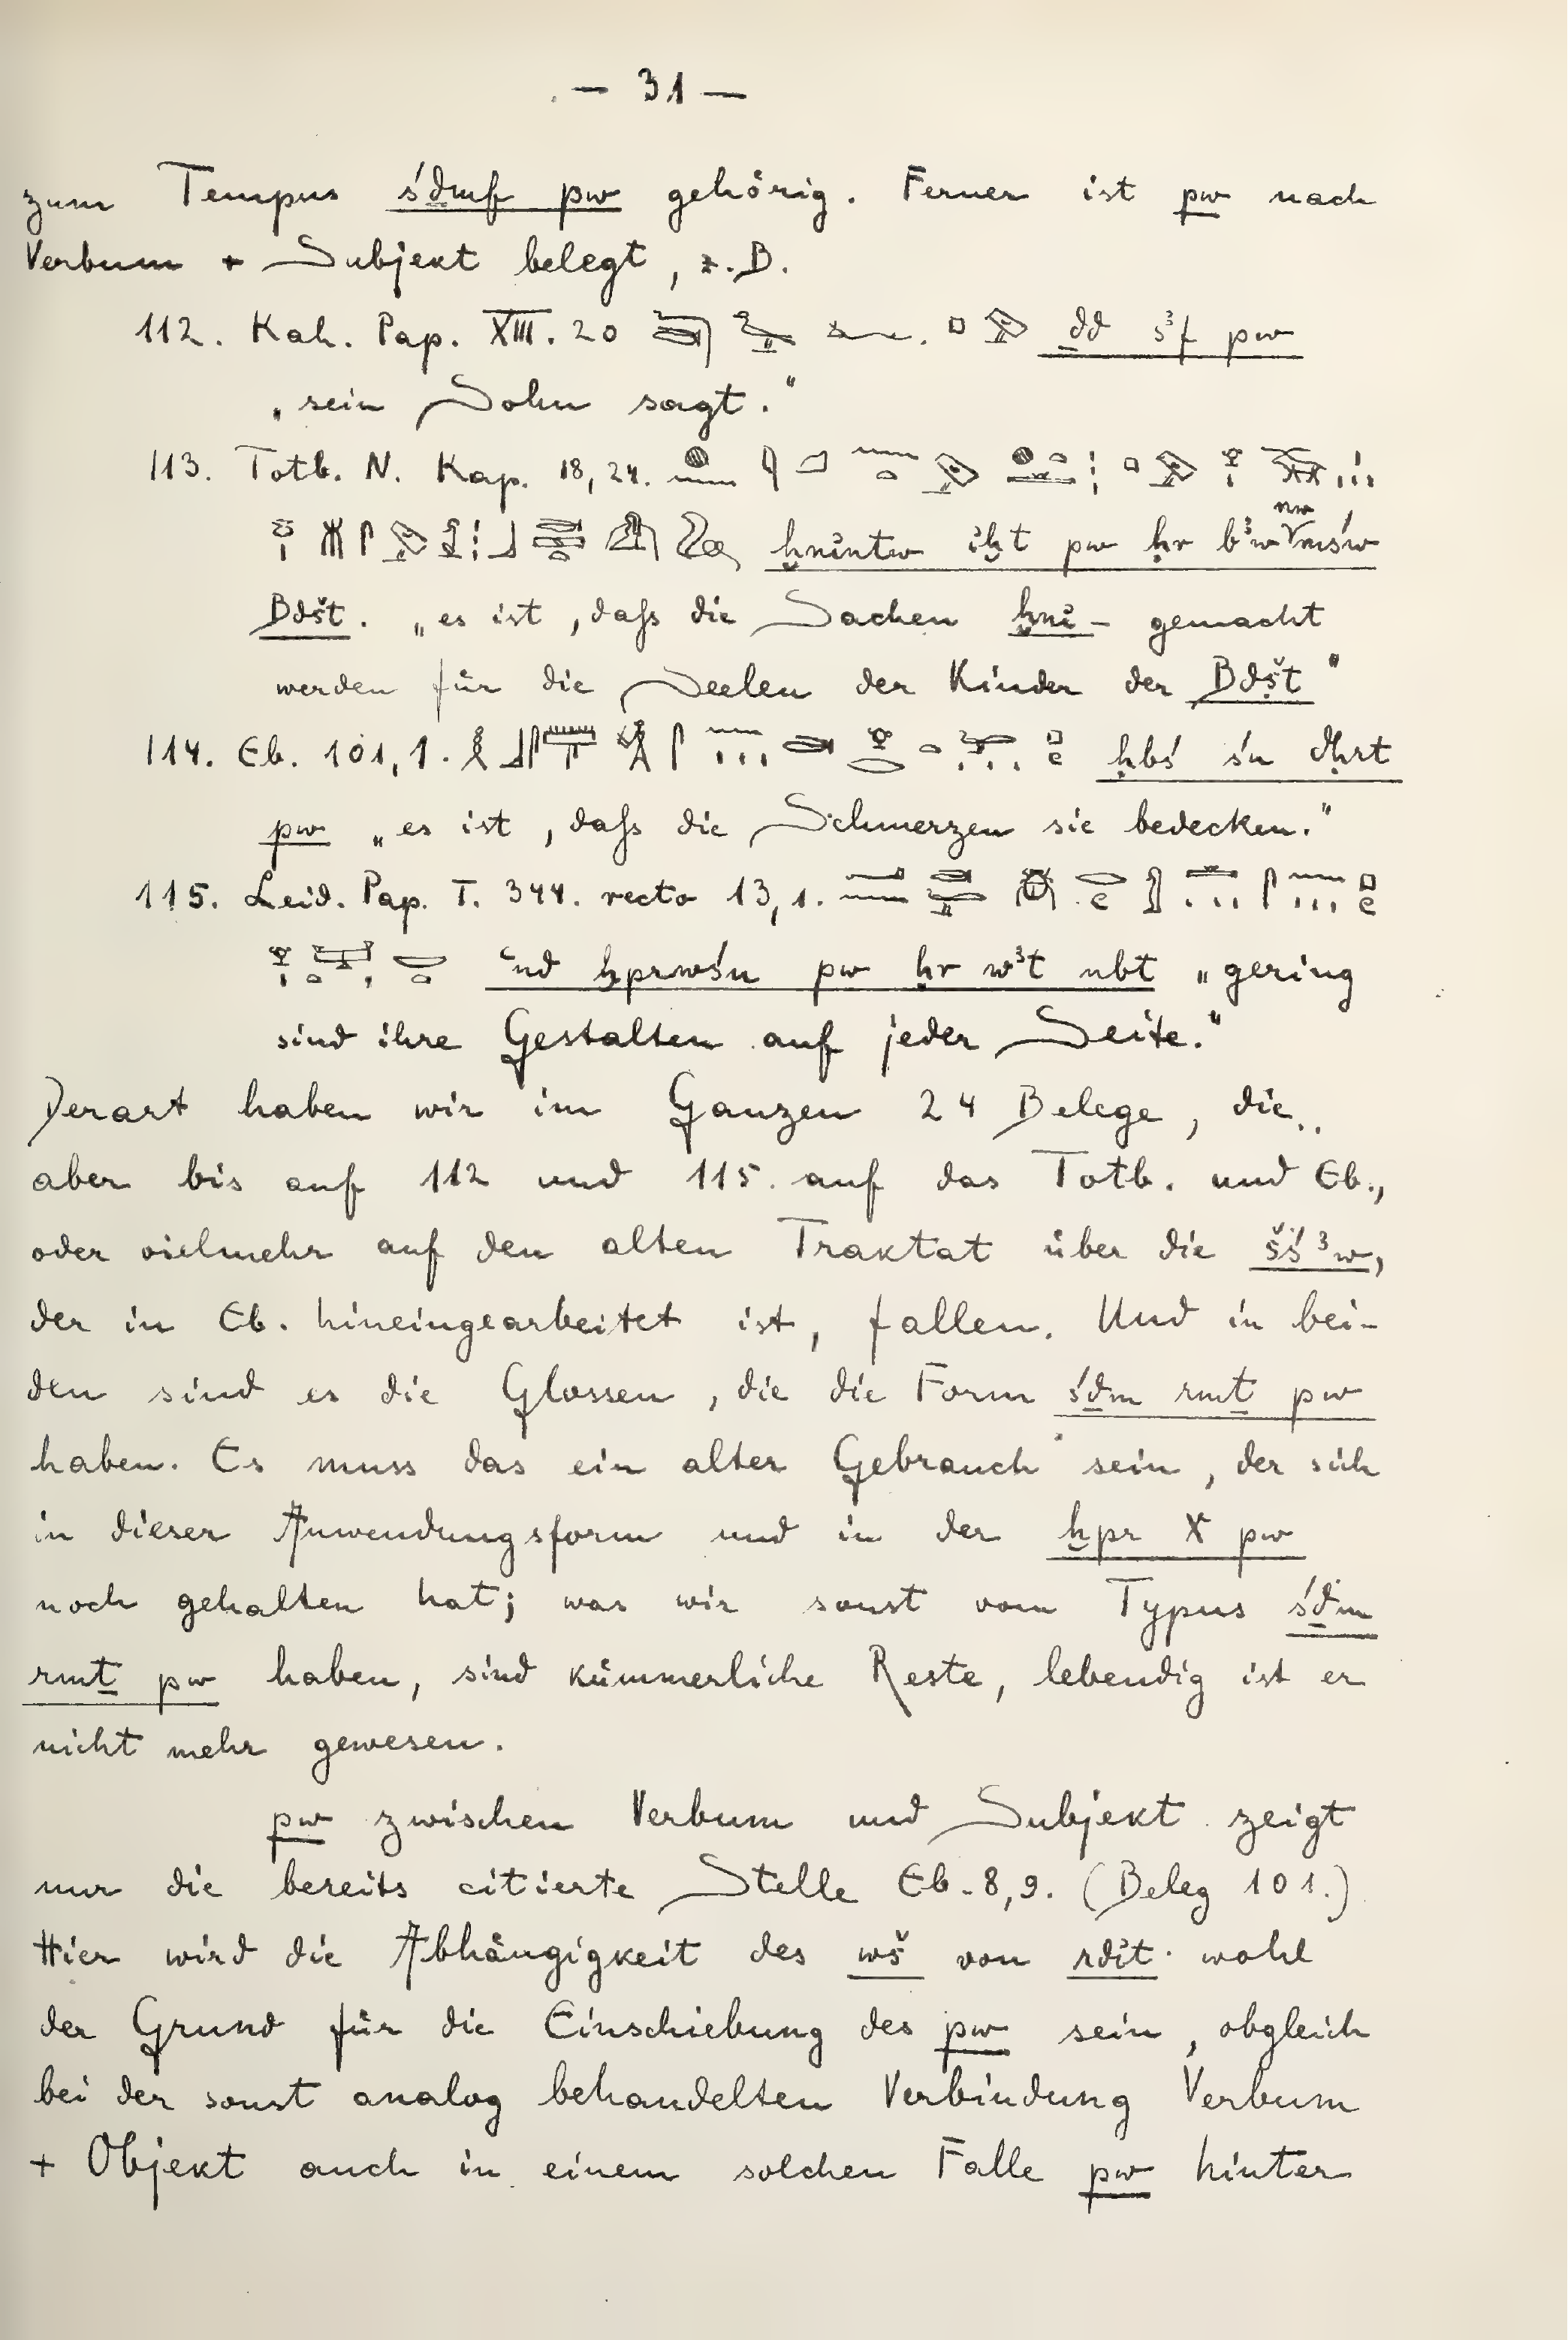 — 31 —
zum Tempus śḏmf pw gehörig. Ferner ist pw nach
Verbum + Subjekt belegt, z.B.
112. Kah. Pap. XIII. 20 ḏd s³f pw
„sein Sohn sagt."
113. Totb. N. Kap. 18, 24.
ḫnỉntw ỉḫt pw ḥr b³w nw mśw
Bdšt. „es ist, daſs die Sachen ḫnỉ- gemacht
werden für die Seelen der Kinder der Bdšt"
114. Eb. 101, 1. ḥbś śn dḥrt
pw „es ist, daſs die Schmerzen sie bedecken."
115. Leid. Pap. I. 344. recto 13, 1.
ʿnd ḫprwśn pw ḥr w³t nbt „gering
sind ihre Gestalten auf jeder Seite."
Derart haben wir im Ganzen 24 Belege, die
aber bis auf 112 und 115 auf das Totb. und Eb.,
oder vielmehr auf den alten Traktat über die šś³w,
der in Eb. hineingearbeitet ist, fallen. Und in bei-
den sind es die Glossen, die die Form śḏm rmṯ pw
haben. Es muss das ein alter Gebrauch sein, der sich
in dieser Anwendungsform und in der ḫpr X pw
noch gehalten hat; was wir sonst vom Typus śḏm
rmṯ pw haben, sind kümmerliche Reste, lebendig ist er
nicht mehr gewesen.
pw zwischen Verbum und Subjekt zeigt
nur die bereits citierte Stelle Eb. 8,9. (Beleg 101.)
Hier wird die Abhängigkeit des wš von rdỉt wohl
der Grund für die Einschiebung des pw sein, obgleich
bei der sonst analog behandelten Verbindung Verbum
+ Objekt auch in einem solchen Falle pw hinter